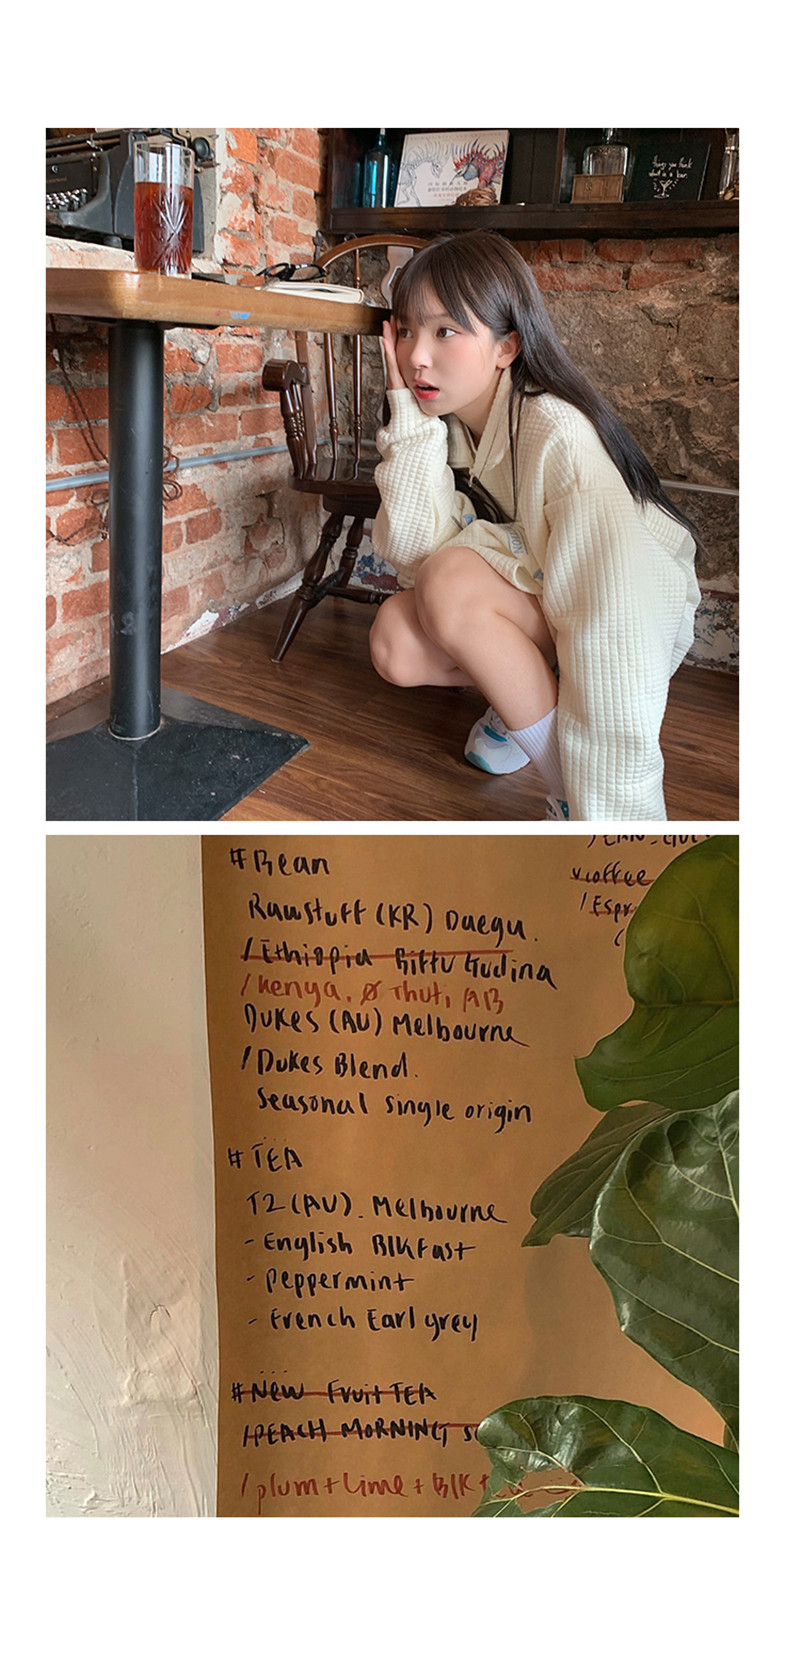 things you think
what in a bar.
#Bean
Rawstuff (KR) Daegu.
/Ethiopia Biftu Gudina
/Kenya, Thuti, AB
Dukes (AU) Melbourne
/Dukes Blend.
Seasonal single origin
#TEA
T2 (AU). Melbourne
- English Blkfast
- Peppermint
- French Earl grey
#New Fruit TEA
/PEACH MORNING
/plum+lime+Blk+
coffee
/Espr